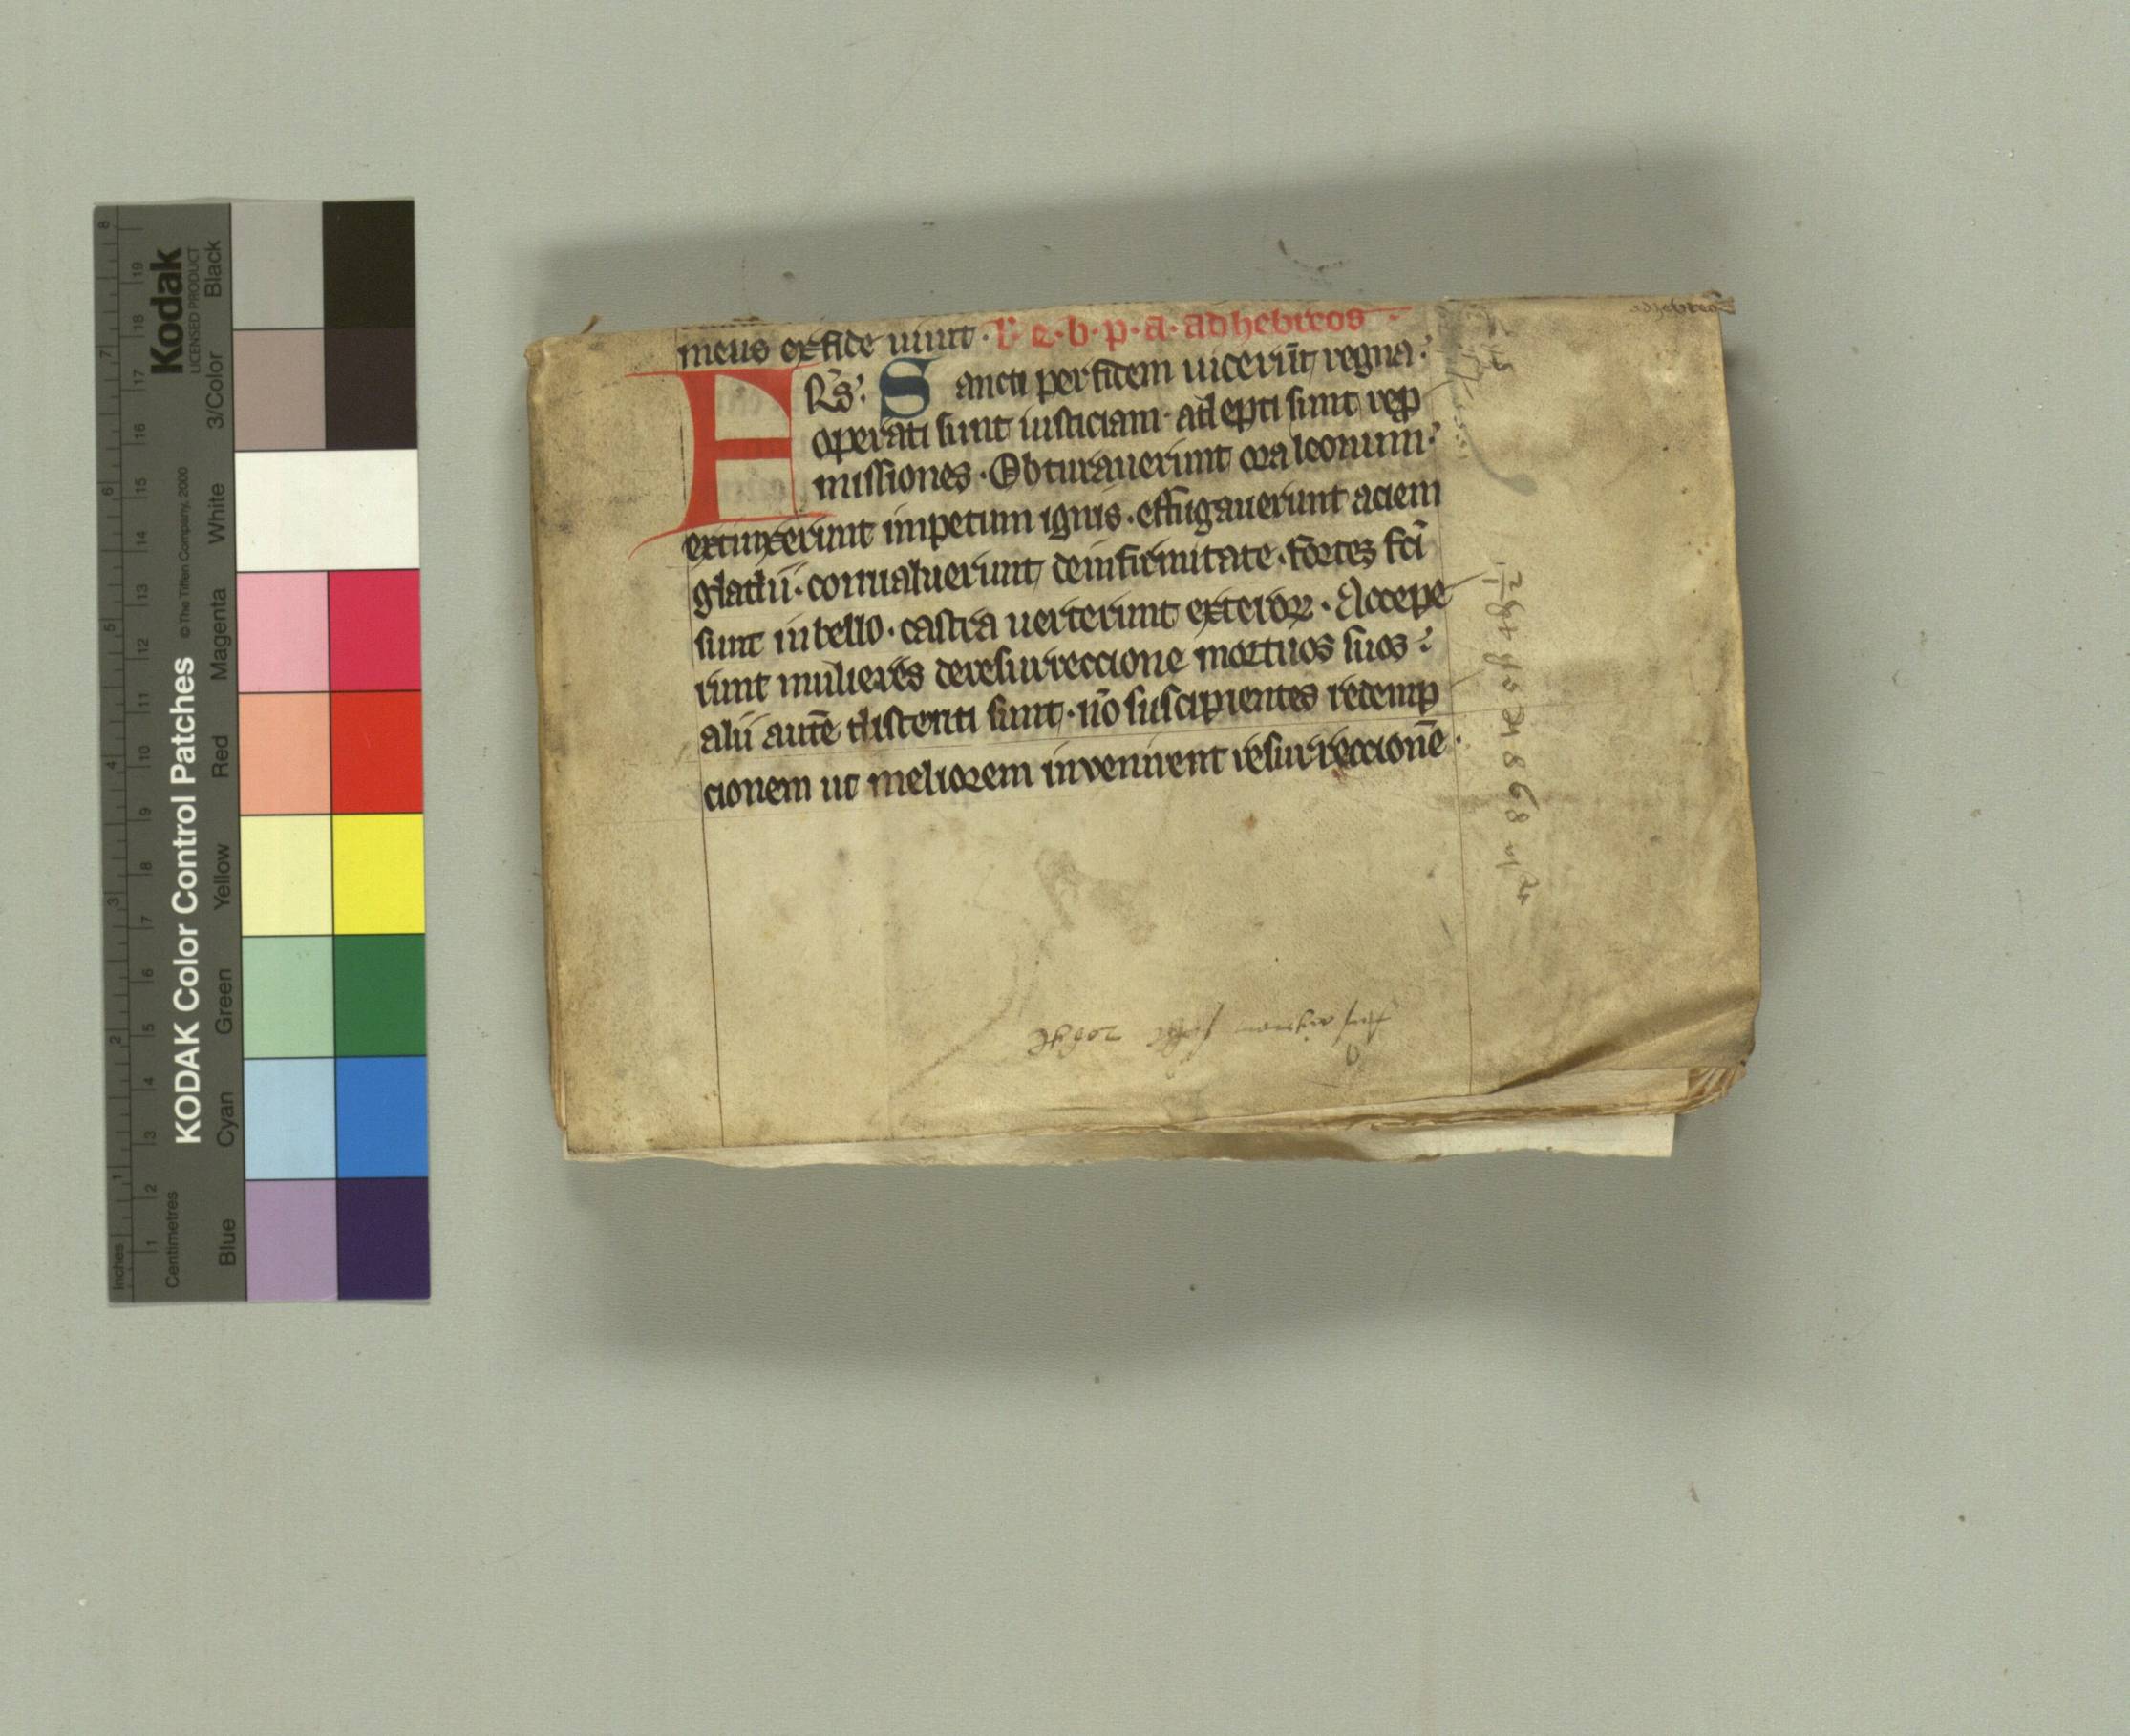 meus ex fide uiuit · l · e · b · p · a · ad hebreos
F Rs̄: Sancti per fidem uicerūt regna:
operati sunt iusticiam · adepti sunt rep
missiones · Obturauerunt ora leonum:
extinxerunt impetum ignis · effugauerunt aciem
gladii · conualuerunt de infirmitate · fortes fc̄i
sunt in bello · castra uerterunt exteroꝝ · Accepe
runt mulieres de resurreccione mortuos suos:
alii autē distenti sunt · nō suscipientes redemp
cionem ut meliorem invenirent resurreccionē ·
KODAK Color Control Patches
© The Tiffen Company, 2000
Kodak
LICENSED PRODUCT
Black
3/Color
White
Magenta
Red
Yellow
Green
Cyan
Blue
Inches
1 2 3 4 5 6 7 8
Centimetres
1 2 3 4 5 6 7 8 9 10 11 12 13 14 15 16 17 18 19